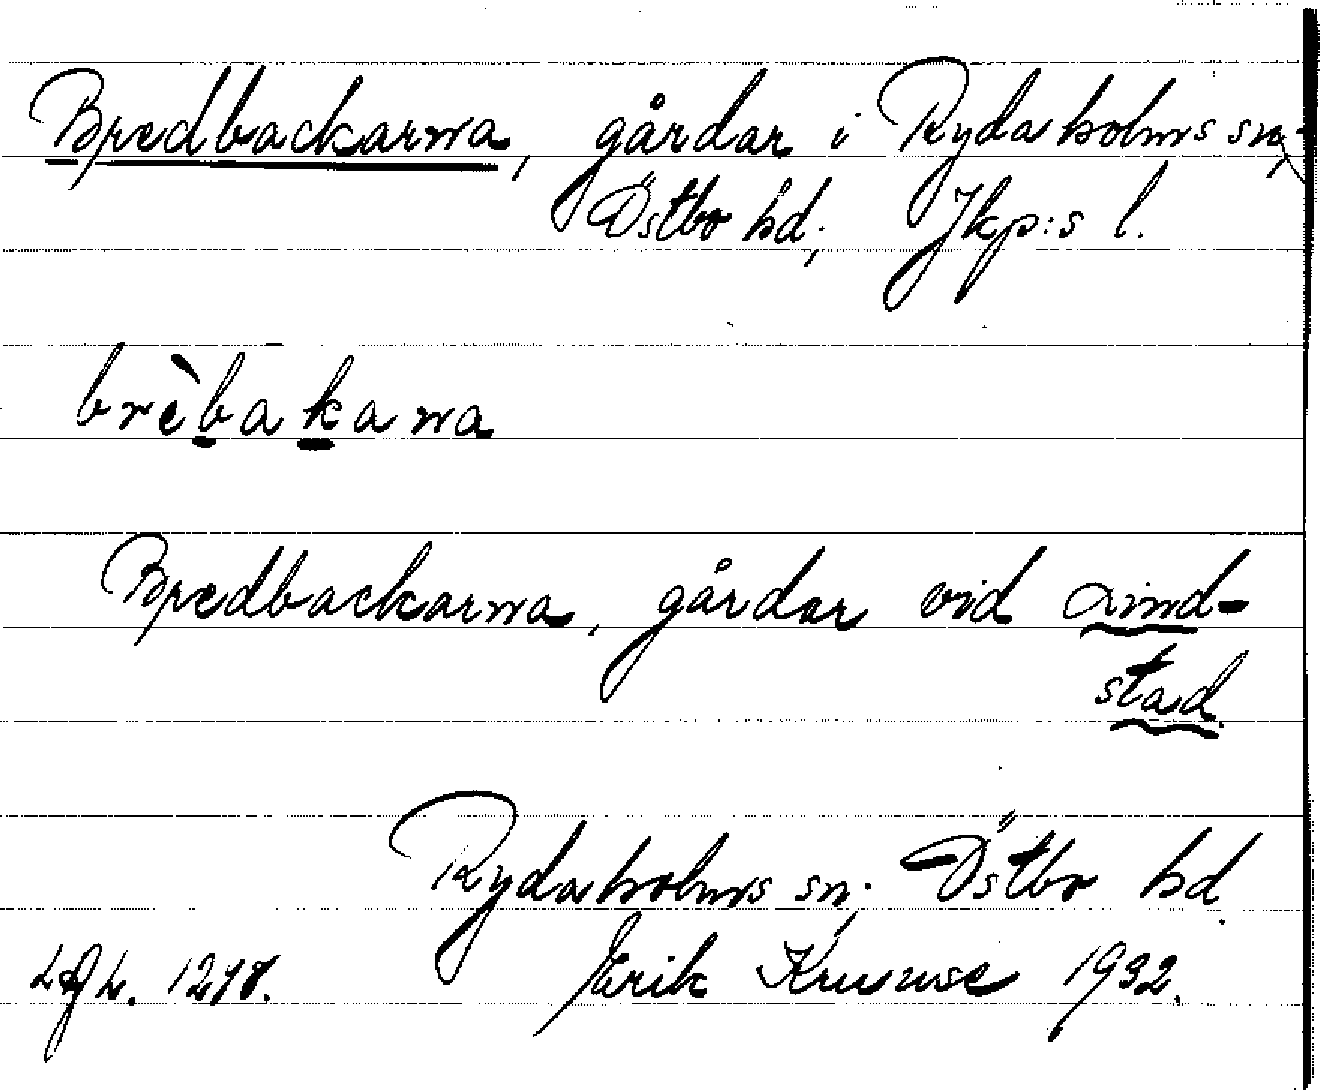 Bredbackarna, gårdar i Rydaholms sn,
Östbo hd, Jkp:s l.
brèbakarna
Bredbackarna, gårdar vid Lind-
stad.
Rydaholms sn, Östbo hd.
Erik Kruuse 1932.